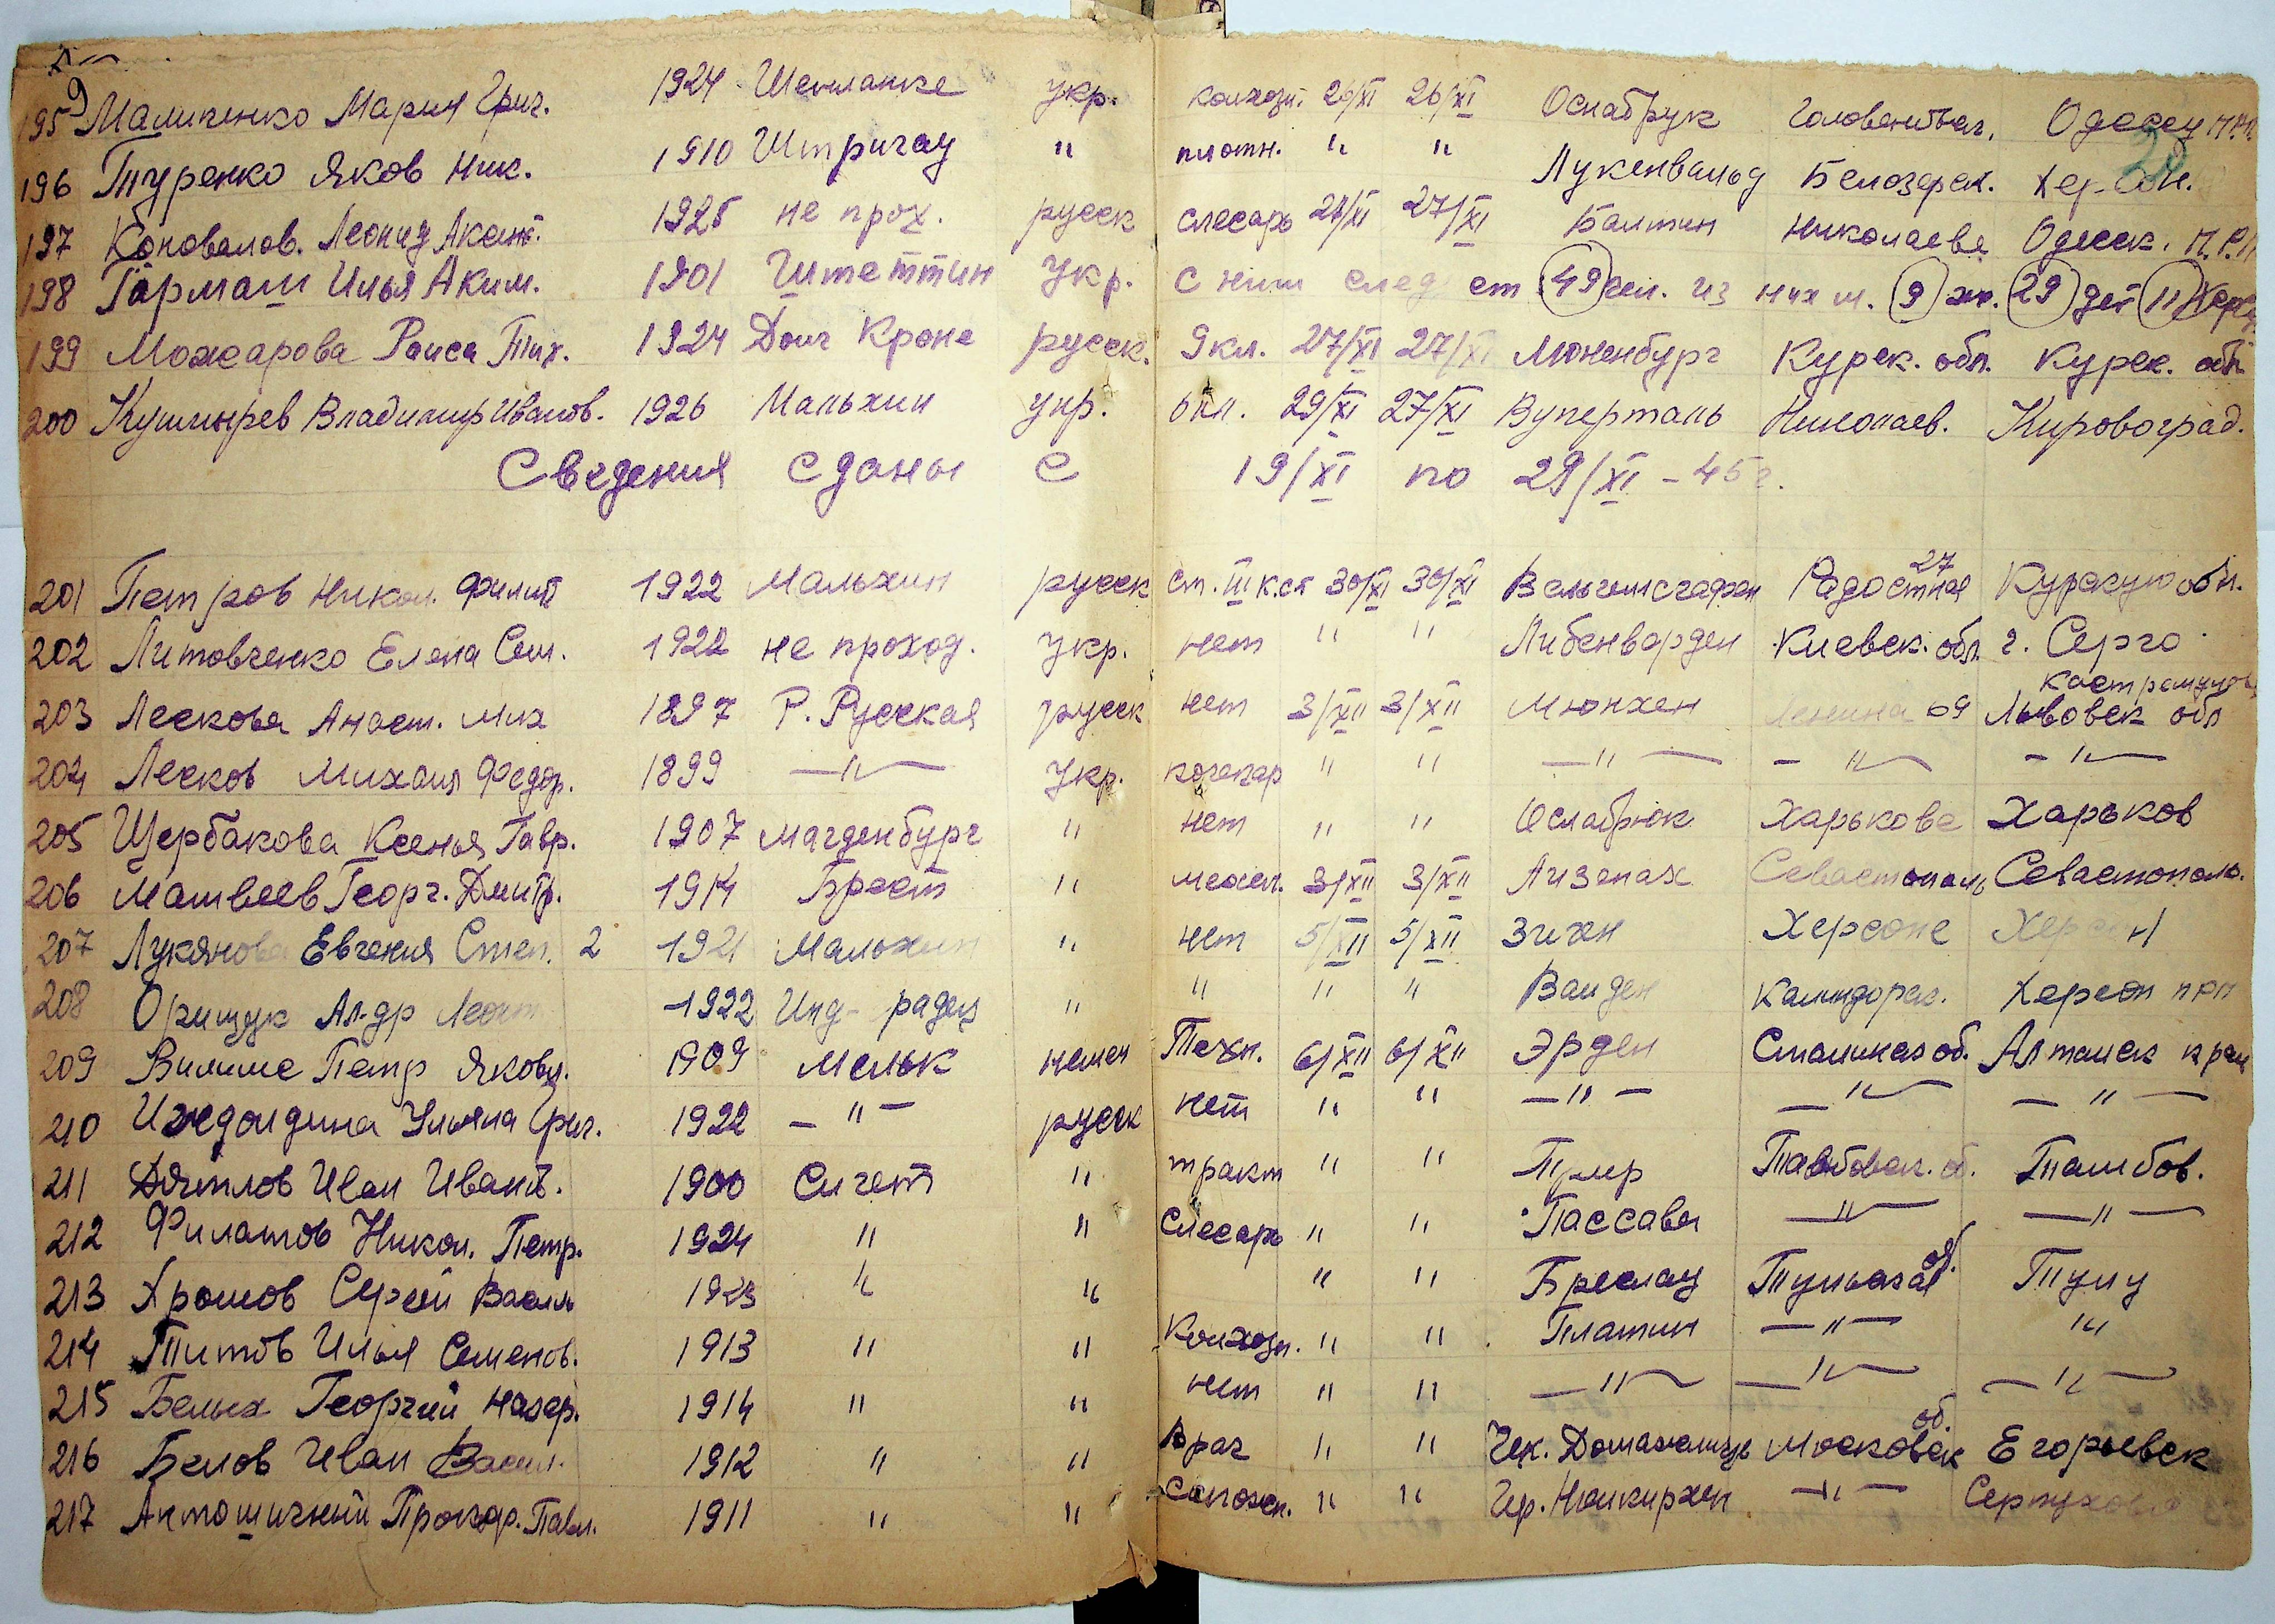 195 Маличенко Мария Григ. 1924 укр. колхозн. 26/XI 26/XI Оснабрук Одесск
196 Туренко Яков Ник. 1910 Штригау " плотн. " " Лукенвальд Белозерск. Херсон.
197 Коновалов. Леонид 1925 не прох. русск слесарь 27/XI 27/XI Балтин Николаеве Одесск.
198 Гармаш Илья Аким. 1901 Штеттин Укр. С ним след ет 49 чел. из них м. 9 ж. 29 дет 11
199 Можарова Раиса Тих. 1924 Доич Кроне русск. 9 кл. 27/XI 27/XI Люненбург Курск. обл. Курск. обл
200 Кушнырев Владимир Иванов. 1926 Мальхин укр. 6 кл. 29/XI 27/XI Вуперталь Николаев. Кировоград.
Сведения сданы с 19/XI по 29/XI – 45 г.
201 Петров Никол. Филип 1922 Мальхин русск 30/XI 30/XI Вельгемсгафен Радостная 27 Курскую обл.
202 Литовченко Елена Сем. 1922 не проход. укр. нет " " Либенварден Киевск. обл. г. Серго
203 Лескова Анаст. Мих 1897 Р. Русская русск нет 3/XII 3/XII Мюнхен Ленина 69 Львовск обл
204 Лесков Михаил Федор. 1899 —"— Укр. кочегар " " —"— —"— —"—
205 Щербакова Ксенья Гавр. 1907 Магденбург " нет " " Ослабрюк Харькове Харьков
206 Матвеев Георг. Дмитр. 1914 Брест " механ. 3/XII 3/XII Айзенах Севастополь Севастополь.
207 Лукянова Евгения Степ. 2 1921 Мальхин " нет 5/XII 5/XII Зиген Херсоне Херсон
208 Орищук Ал-др 1922 " " " " Вайден Калиндорск. Херсон
209 Петр Яковл. 1909 Мельк немец Техн. 6/XII 6/XII Эрден Сталинск об. Алтайск край
210 Ульяна Григ. 1922 —"— русск нет " " —"— —"— —"—
211 Дятлов Иван Иван. 1900 Сигет " тракт " " об. Тамбов.
212 Филатов Никол. Петр. 1924 " " Слесарь " " Пассава —"— —"—
213 Хромов Сергей Васил 1923 " " " " Бреслау Тульская об. Тулу
214 Титов Илья Семенов. 1913 " " Колхозн. " " Платин —"— "
215 Белых Георгий Назар. 1914 " " нет " " —"— —"— —"—
216 Белов Иван Васил. 1912 " " Врач " " Чех. Домажлице Московск об. Егорьевск
217 Прокоф. Павл. 1911 " " Сапожн. " " Гер. Нюикирхен —"— Серпухова